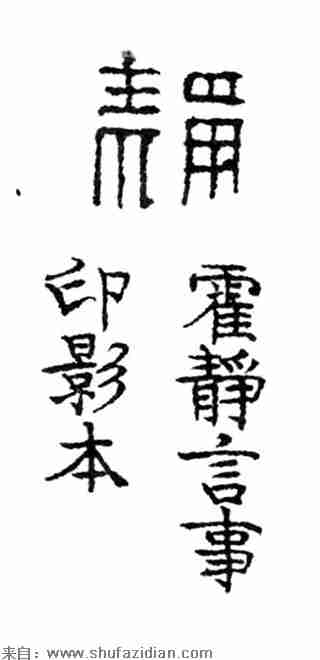 霍靜言事
印影本
来自：www.shufazidian.com